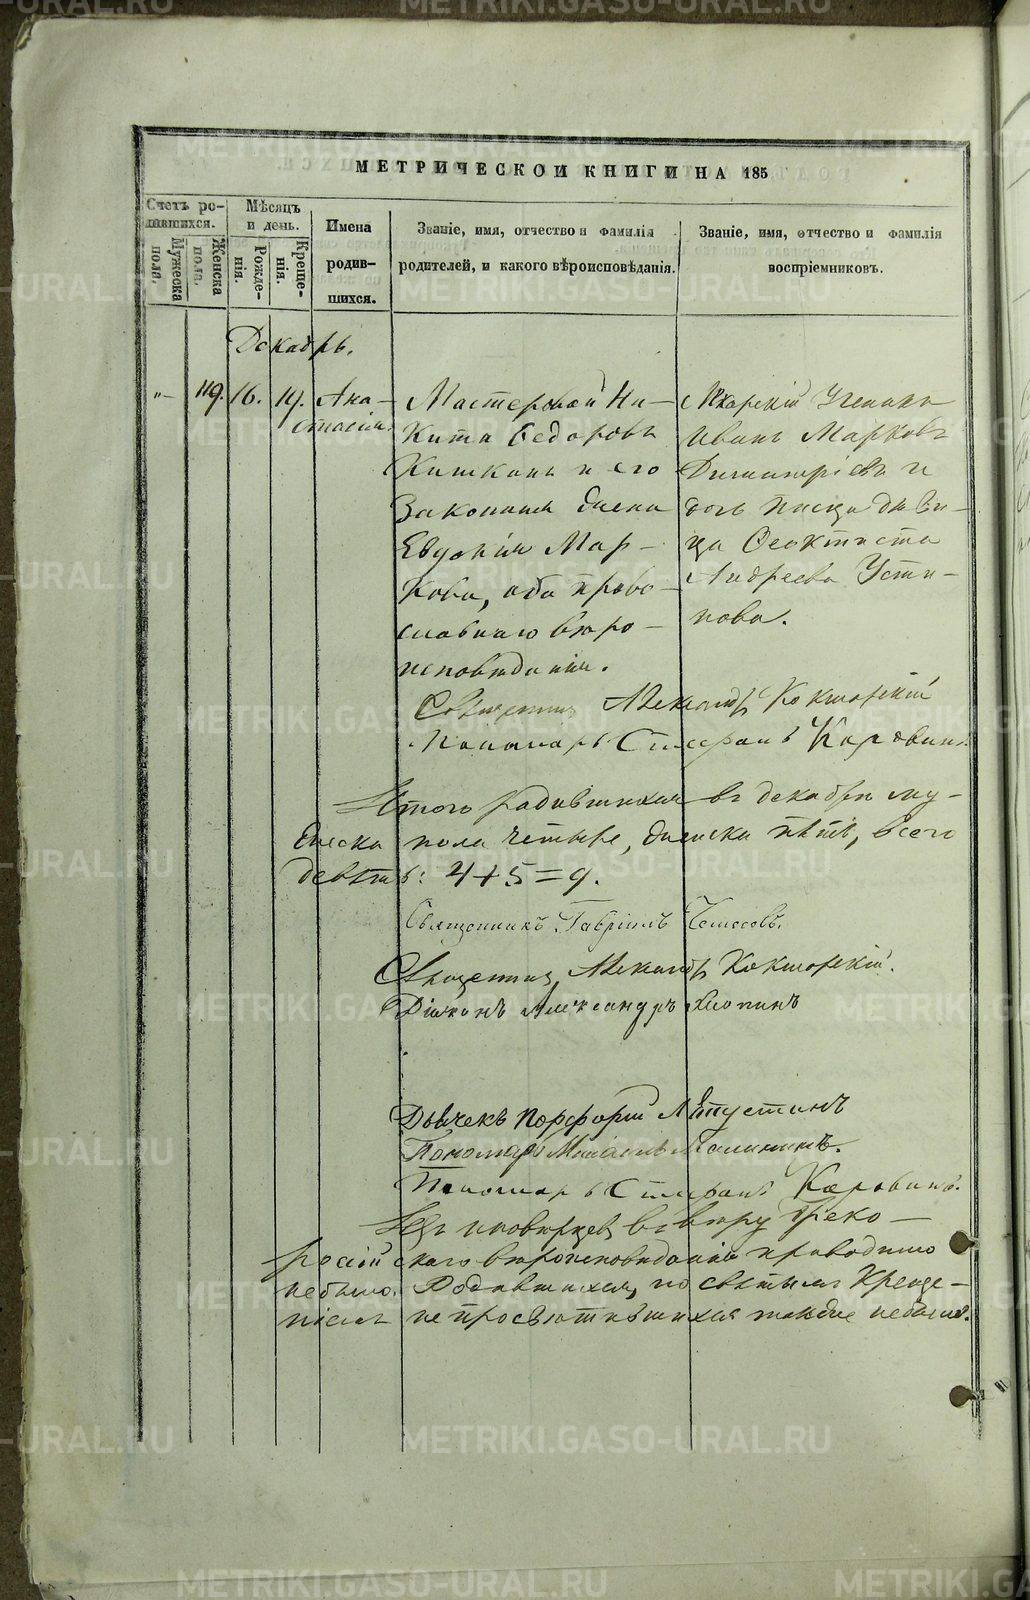 МЕТРИЧЕСКОЙ КНИГИ НА 185
Счетъ ро-
дившихся.
Мужеска
пола.
Женска
пола.
Мѣсяцъ
и день.
Рожде-
нія.
Креще-
нія.
Имена
родив-
шихся.
Званіе, имя, отчество и фамилія
родителей, и какого вѣроисповѣданія.
Званіе, имя, отчество и фамилія
воспріемниковъ.
Декабрь.
"
119.
16.
19.
Ана-
стасія.
Мастеровой Ни-
кита Ѳедоровъ
и его
законная жена
Евдокія Мар-
кова, оба право-
славнаго вѣро-
исповѣданія.
Лѣкарскій ученикъ
Иванъ Марковъ
Димитріевъ и
дочь писца дѣви-
ца Ѳеоктиста
Андреева Усти-
нова.
Священникъ Александръ Кокшарскій
Пономарь Стефанъ Коровинъ.
Итого родившихся въ декабрѣ му-
жеска пола четыре, женска пять, всего
девять: 4+5=9.
Священникъ Гавріилъ
Священникъ Александръ Кокшарскій.
Діаконъ Александръ Хлопинъ
Дьячекъ Порфирій
Пономарь
Пономарь Стефанъ Коровинъ.
Изъ иновѣрцевъ въ вѣру Греко-
россійскаго вѣроисповѣданія приводимо
небыло. Родившихся, но святымъ Креще-
ніемъ не просвѣтившихся также небыло.
METRIKI.GASO-URAL.RU